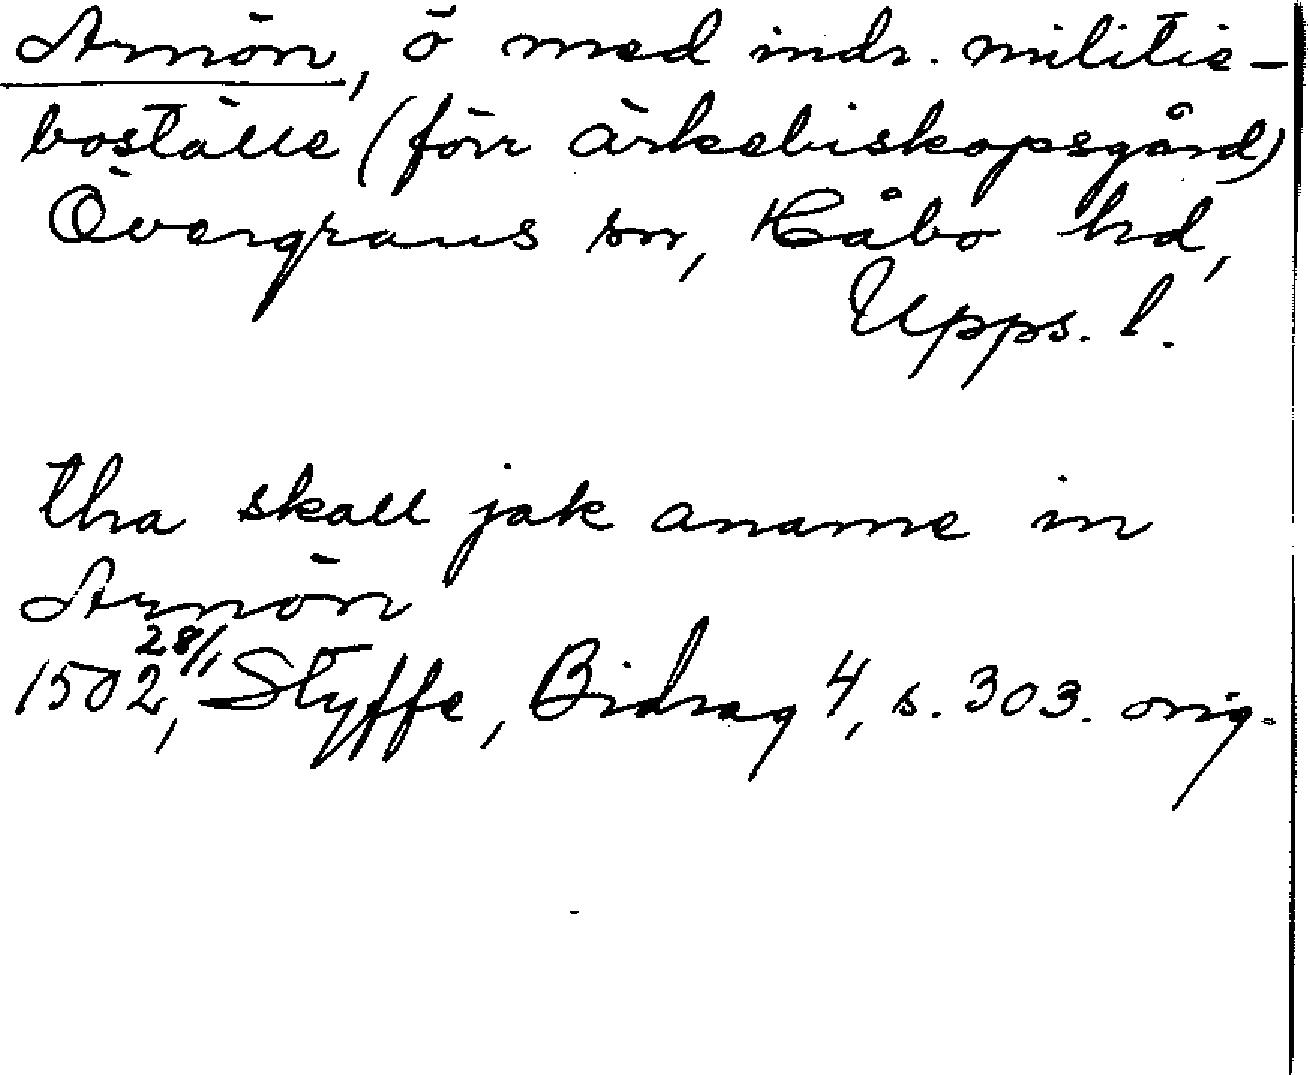 Arnön, ö med indr. militie-
boställe (förr ärkebiskopsgård)
Övergrans sn, Håbo hd,
Upps. l.
tha skall jak aname in
Arnön
1502 28/1, Styffe, Bidrag 4, s. 303. orig.